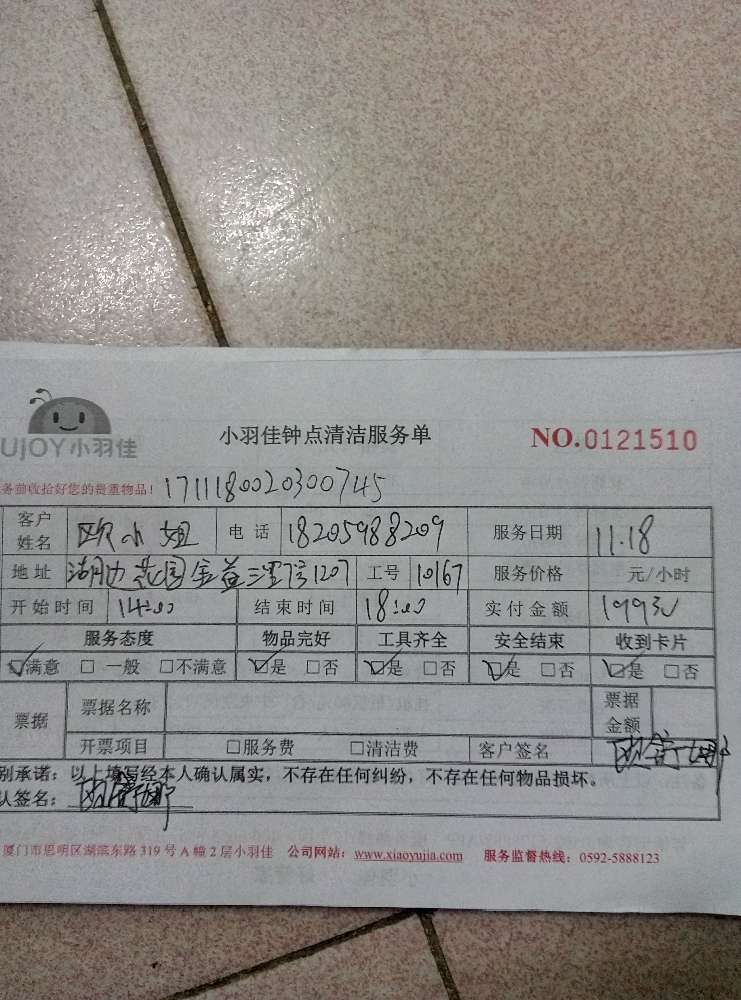 UJOY小羽佳 小羽佳钟点清洁服务单 NO.0121510
务前收拾好您的贵重物品! 171118002030745
客户姓名 欧小姐 电话 18205988209 服务日期 11.18
地址 湖边花园金益三里7号1207 工号 10167 服务价格 元/小时
开始时间 14:00 结束时间 18:00 实付金额 199元
服务态度 物品完好 工具齐全 安全结束 收到卡片
☑满意 □一般 □不满意 ☑是 □否 ☑是 □否 ☑是 □否 ☑是 □否
票据 票据名称 票据金额
开票项目 □服务费 □清洁费 客户签名
别承诺：以上填写经本人确认属实，不存在任何纠纷，不存在任何物品损坏。
认签名：
厦门市思明区湖滨东路319号A幢2层小羽佳 公司网站：www.xiaoyujia.com 服务监督热线：0592-5888123